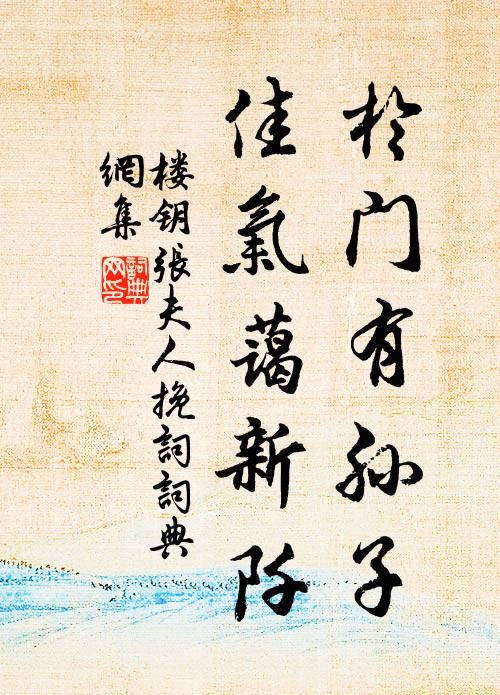 於門有孙子
佳氣藹新阡
楼钥張夫人挽詞詞典
網集
詞典网印